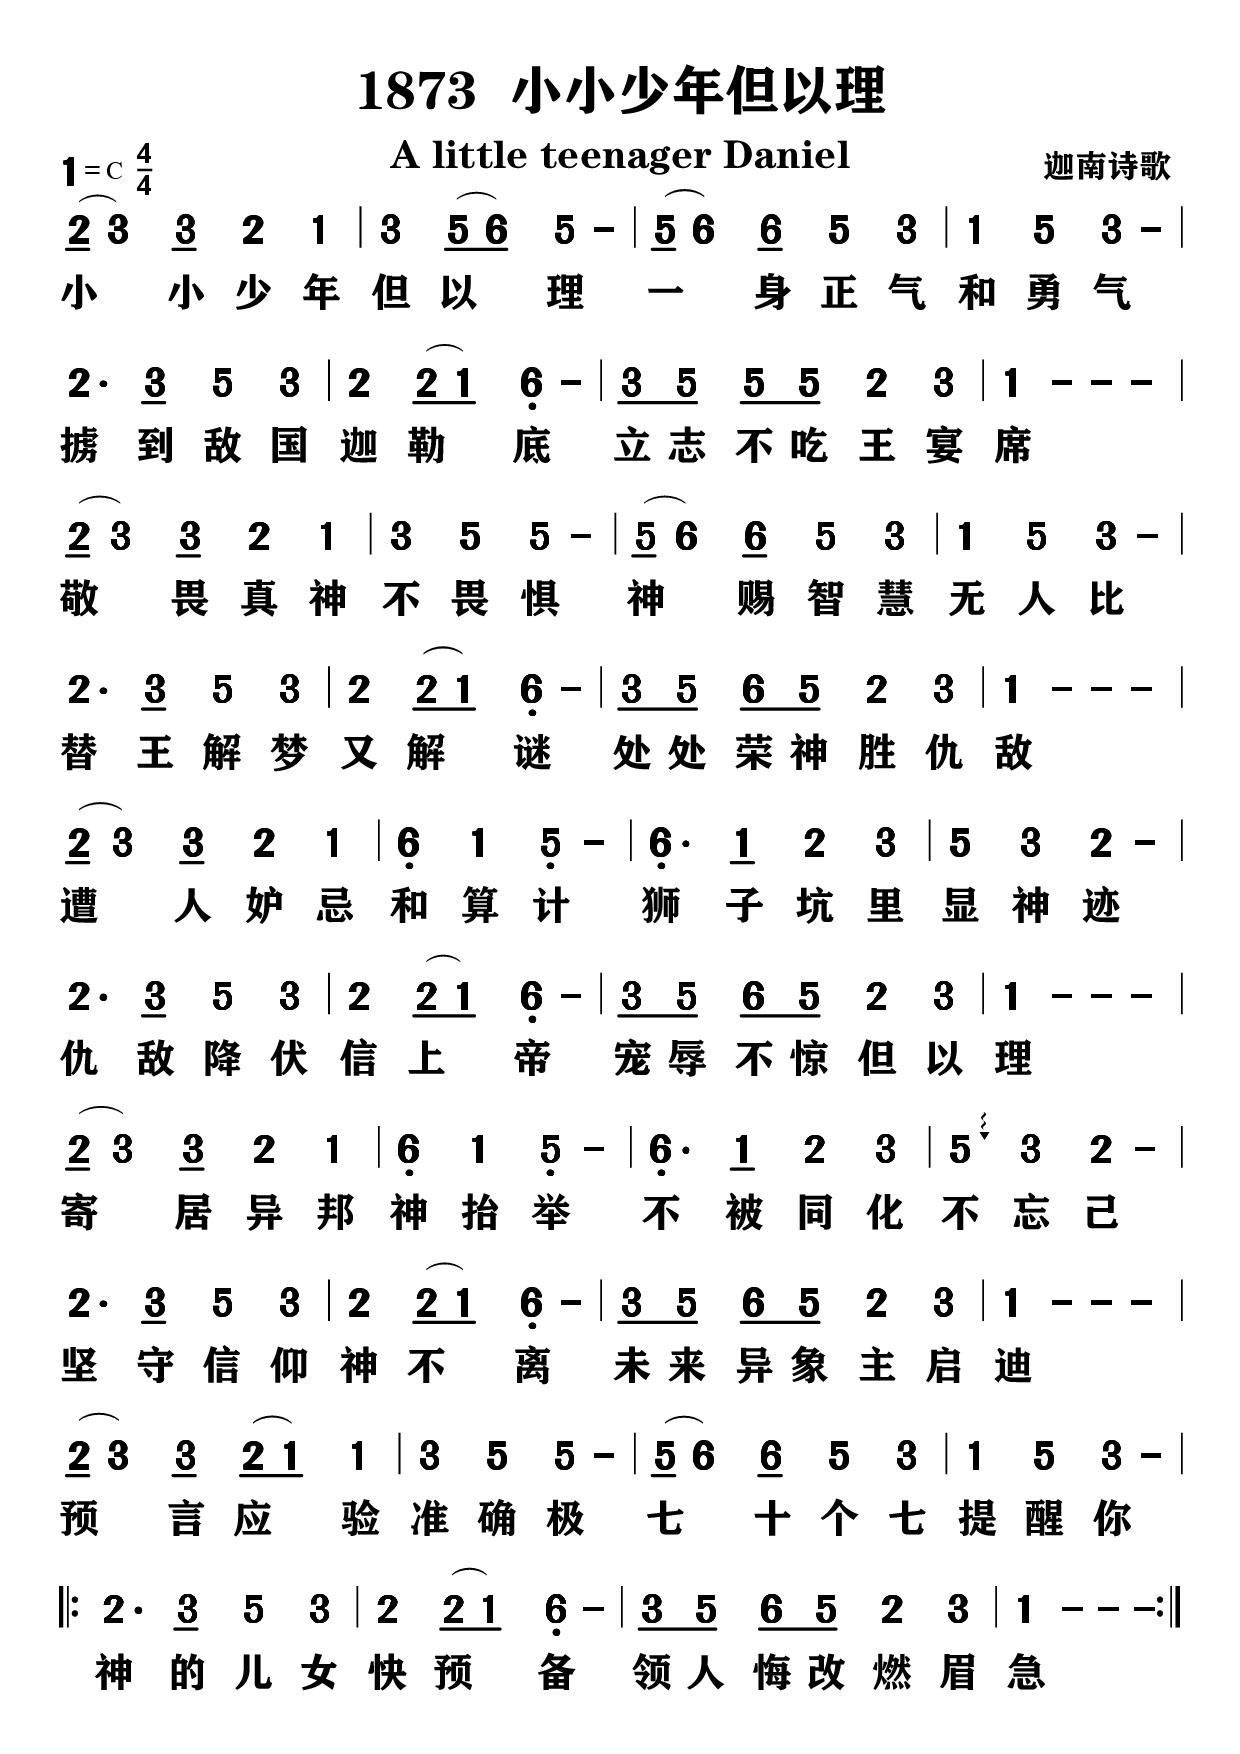 1873 小小少年但以理
A little teenager Daniel
1=C 4/4
迦南诗歌
2 3 3 2 1 | 3 5 6 5 – | 5 6 6 5 3 | 1 5 3 – |
小 小少年但以 理 一 身正气和勇气
2· 3 5 3 | 2 2 1 6 – | 3 5 5 5 2 3 | 1 – – – |
掳到敌国迦勒 底 立志不吃王宴席
2 3 3 2 1 | 3 5 5 – | 5 6 6 5 3 | 1 5 3 – |
敬 畏真神不畏惧 神 赐智慧无人比
2· 3 5 3 | 2 2 1 6 – | 3 5 6 5 2 3 | 1 – – – |
替王解梦又解 谜 处处荣神胜仇敌
2 3 3 2 1 | 6 1 5 – | 6· 1 2 3 | 5 3 2 – |
遭 人妒忌和算计 狮子坑里显神迹
2· 3 5 3 | 2 2 1 6 – | 3 5 6 5 2 3 | 1 – – – |
仇敌降伏信上 帝 宠辱不惊但以理
2 3 3 2 1 | 6 1 5 – | 6· 1 2 3 | 5 3 2 – |
寄 居异邦神抬举 不被同化不忘己
2· 3 5 3 | 2 2 1 6 – | 3 5 6 5 2 3 | 1 – – – |
坚守信仰神不 离 未来异象主启迪
2 3 3 2 1 1 | 3 5 5 – | 5 6 6 5 3 | 1 5 3 – |
预 言应 验准确极 七 十个七提醒你
‖: 2· 3 5 3 | 2 2 1 6 – | 3 5 6 5 2 3 | 1 – – – :‖
神的儿女快预 备 领人悔改燃眉急